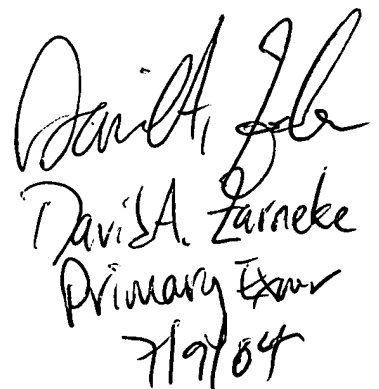 David A. Zarneke
David A. Zarneke
Primary Exmr
7/9/04